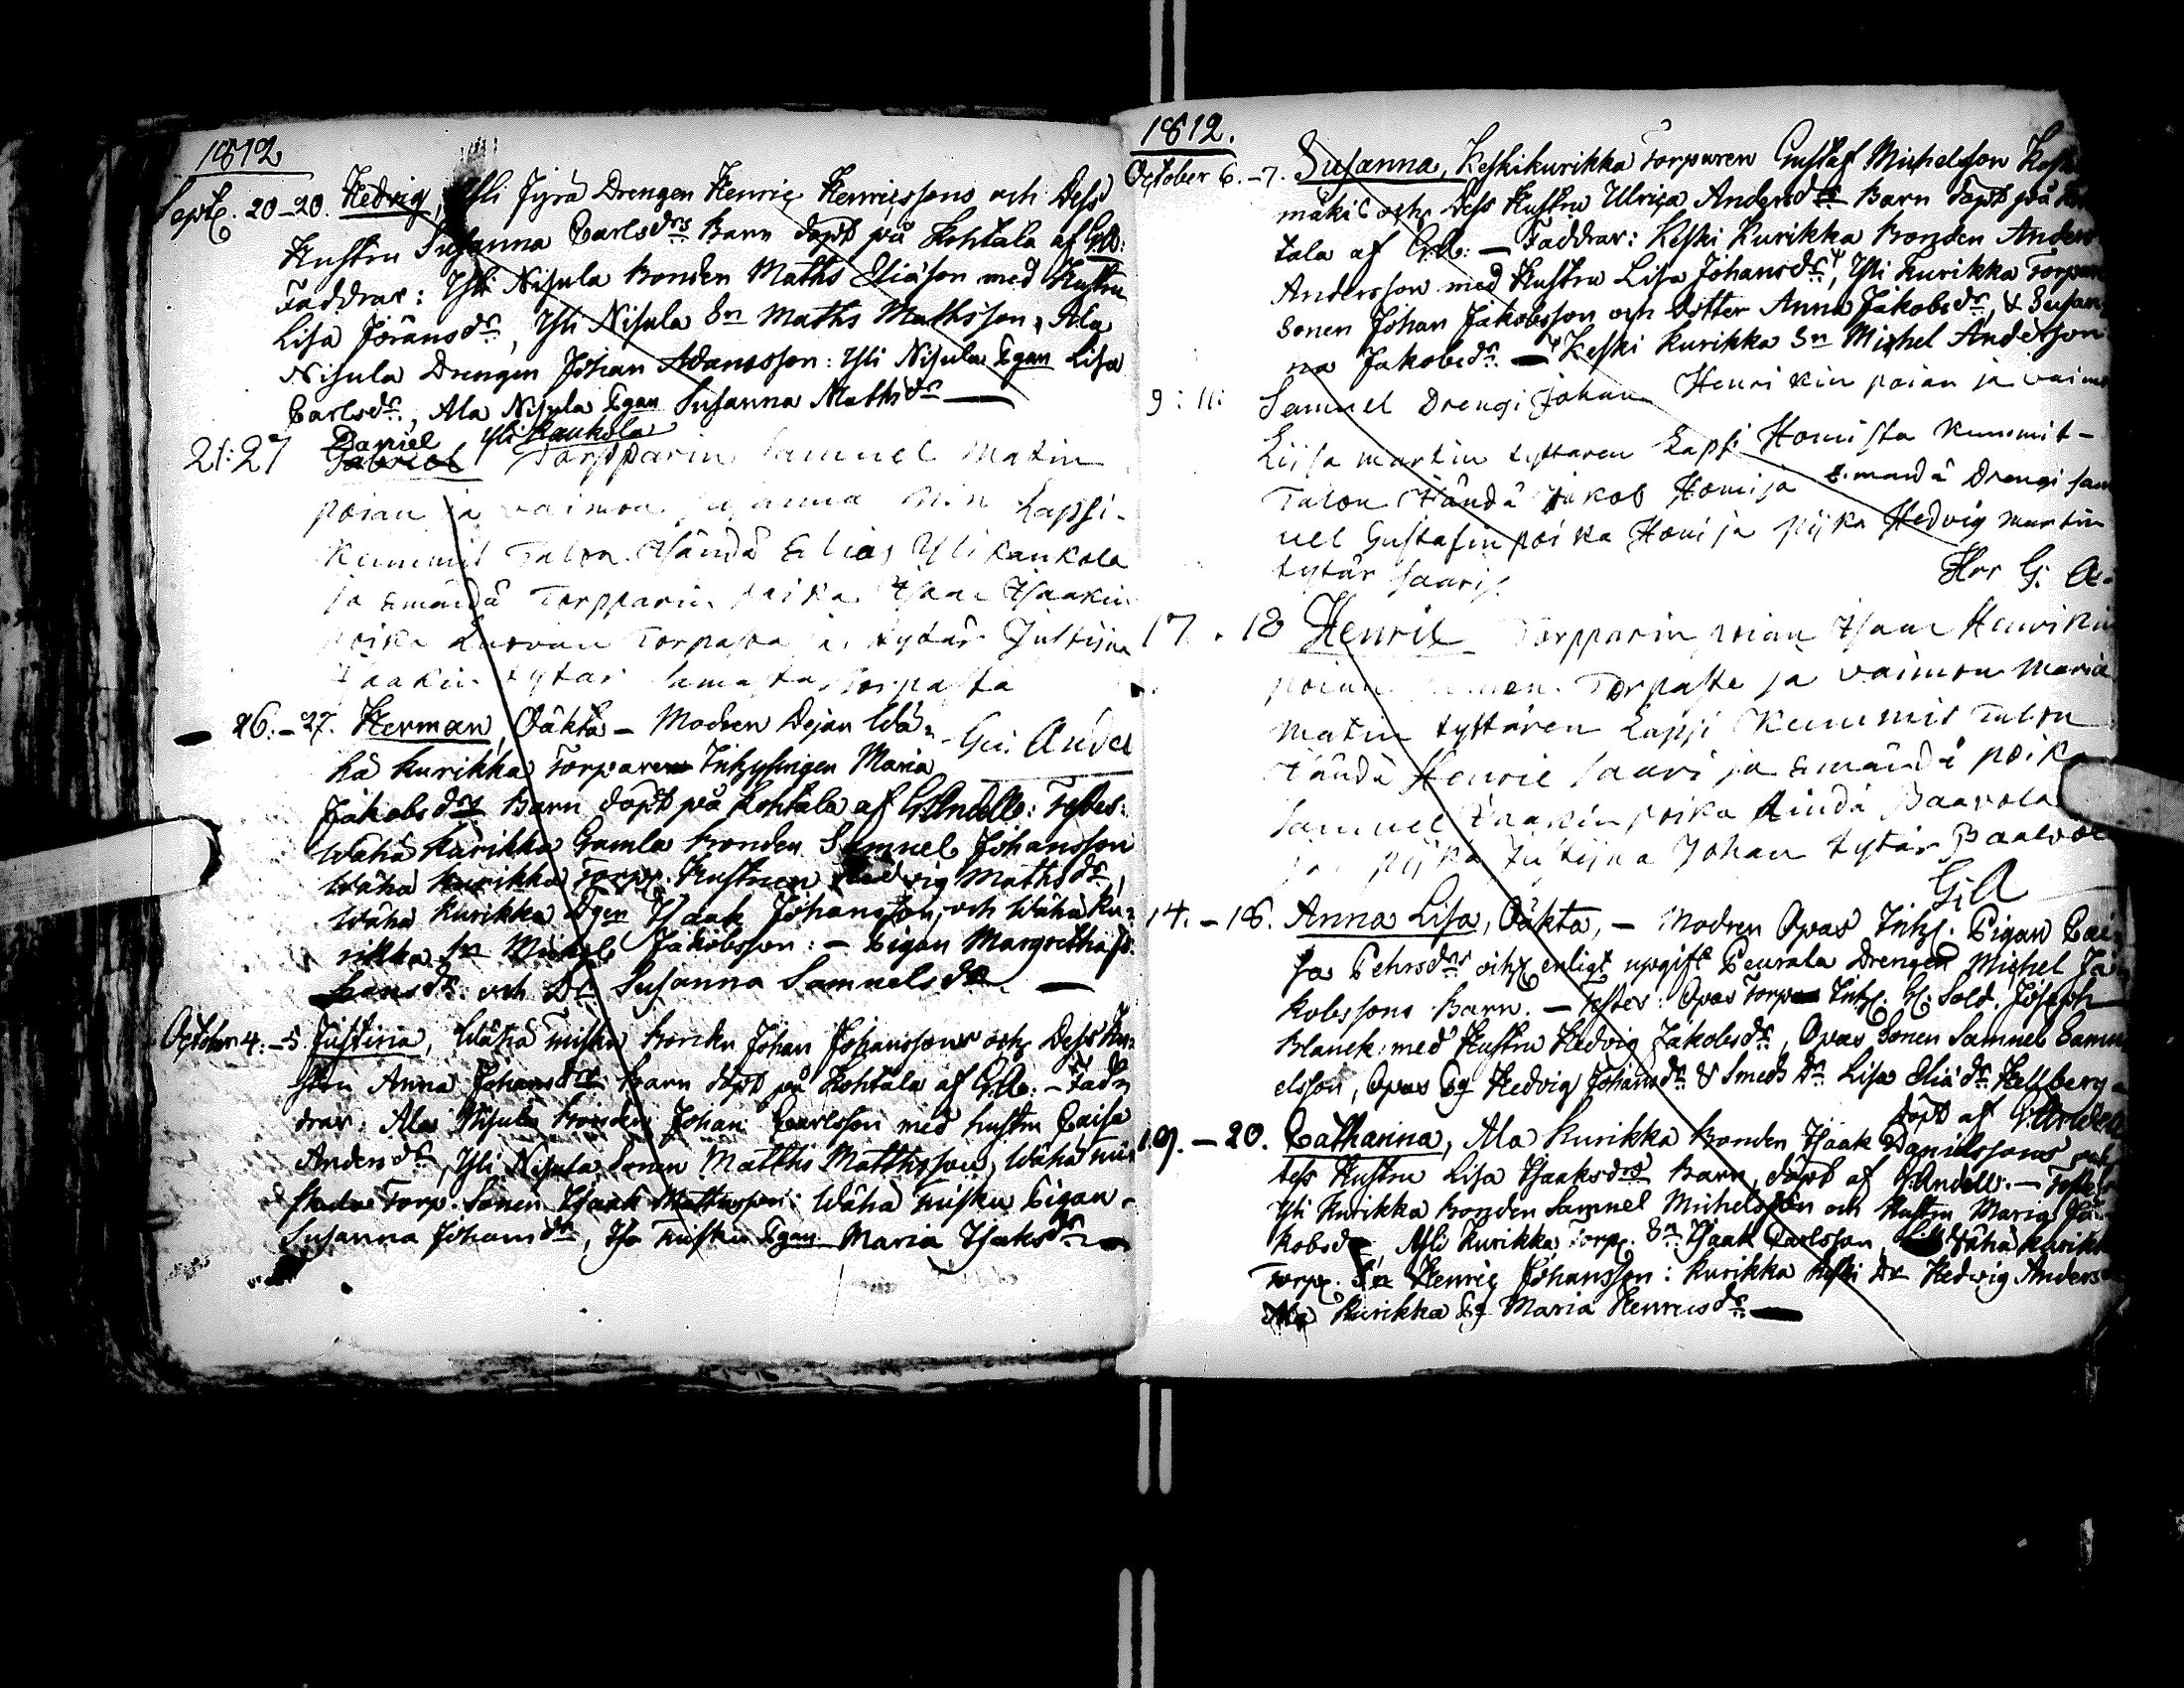 1812
Sept. 20-20. Hedvig, Yli Jyrä Drengen Henric Henricssons och Dess
Hustru Susanna Carlsdrs Barn döpt på Kohtala af G.A:
Faddrar: Yli Nisula Bonden Maths Eliäson med Hustru
Lisa Jöransdr, Yli Nisula Sn Maths Mathsson, Ala
Nisula Drengen Johan Adamsson: Yli Nisula Pgan Lisa
Carlsdr, Ala Nisula Pgan Susanna Mathsdr —
21:27 Daniel Yli Kaukola
Gabriel Torpparin Samuel Matin
poian ja vaimon Susanna Lapsi-
Kummit Talon Isändä Elias Yli Kaukola
ja Emändä Torpparin poika Isaac Isaakin
poika Torpasta ja tytär Justina
Isaakin tytär samasta Torpasta
— 26.-27. Herman, Oäkta - Modren Dejan Wä-
hä Kurikka Torpare Inhysingen Maria
Gu: Andel
Jakobsdrs Barn döpt på Kohtala af G:Andell: Testes:
Wähä Kurikka Gamla Bonden Samuel Johansson
Wähä Kurikka Torpp. Hustruen Hedvig Mathsdr,
Wähä Kurikka Dgen Isaak Johansson, och Wähä Ku-
rikka Sn Michel Jakobsson: - Pigan Margretha Jo-
hansdr och Dr Susanna Samuelsdr —
October 4:-5. Justina, Wähä Bonden Johan Johanssons och Dess Hu-
stru Anna Johansdrs Barn döpt på Kohtala af G.A: - Fad-
drar: Ala Nisula Bonden Johan Carlsson med hustru Caisa
Andersdr, Yli Nisula Sonen Matths Matthsson, Wähä
Torp. Sonen Isaak Mattsson: Wähä Pigan
Susanna Johansdr, Pgan Maria Isaksdr —
1812.
October 6.-7. Susanna, Keskikurikka Torparen Gustaf Michelsson
mäkis och Dess Hustru Ulrica Andersdrs Barn döpt på Koh-
tala af G.A: — Faddrar: Keski Kurikka Bonden Anders
Andersson med Hustru Lisa Johansdr, Yli Kurikka Torpare
Sonen Johan Jakobsson och Dotter Anna Jakobsdr, & Susan-
na Jakobsdr. — Keski Kurikka Sn Michel Andersson
9:11: Samuel Drengi Johan Henrikin poian ja vaimo
Liisa Martin tyttären Lapsi Homista Kummit-
Talon Isändä Jakob Homi ja Emändä Drengi Sam
uel Gustafin poika Homi ja pijka Hedvig Martin
tytär Saaris
Hrr G: A.
17. 18 Henric Torpparin poian Isaac Henrikin
poian Torpasta ja vaimon Maria
Matin tyttären Lapsi Kummit Talon
Isändä Henric Saari ja Emändä poika
Samuel Isaakin poika Paavola
ja pijka Justina Johan tytär Paavola
G:A
14.-18. Anna Lisa, Oäkta, - Modren Opas Inhys. Pigan Cai-
sa Pehrsdrs och enligt upgift Peurala Drengen Michel Ja-
kobssons Barn. — Testes: Opas Torp Inhys. Sold. Joseph
Blanck med Hustru Hedvig Jakobsdr, Opas Sonen Samuel Samu-
elsson, Opas Pg Hedvig Johansdr & Smeds Dr Lisa Eliädr Hellberg
döpt af G:Andell
19.-20. Catharina, Ala Kurikka Bonden Isaak Danielssons och
dess Hustru Lisa Isaaksdrs Barn, döpt af G:Andell. — Testes
Yli Kurikka Bonden Samuel Michelsson och Hustru Maria Ja-
kobsdr, Yli Kurikka Torp. Sn Isaak Carlsson, Wähä Kurikka
Torp. Sn Henric Johansson: Kurikka Keski Dr Hedvig Anders
Ala Kurikka Pg Maria Henricsdr —